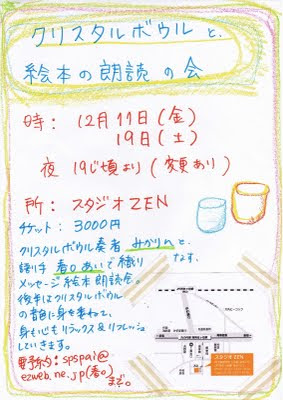 クリスタルボウルと、
絵本の朗読の会
時：12月11日（金）
19日（土）
夜 19じ頃より（変更あり）
所：スタジオZEN
チケット：3000円
クリスタルボウル奏者 みかりんと、
語り手 春口あいで織りなす、
メッセージ絵本朗読会。
後半はクリスタルボウル
の音色に身を委ねて、
身も心もリラックス&リフレッシュ
していきます。
要予約：spspai@
ezweb.ne.jp（春口）
まで。
スタジオ ZEN